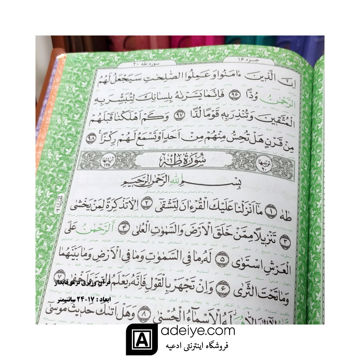 سوره طه ٢٠ جزء ١٦
اِنَّ الَّذينَ ءامَنوا وَ عَمِلُوا الصّلِحتِ سَيَجعَلُ لَهُم
الرَّحمنُ وُدًّا ٩٦ فَاِنَّما يَسَّرنهُ بِلِسانِكَ لِتُبَشِّرَ بِهِ
المُتَّقينَ وَتُنذِرَ بِه قَومًا لُدًّا ٩٧ وَكَم اَهلَكنا قَبلَهُم
مِن قَرنٍ هَل تُحِسُّ مِنهُم مِن اَحَدٍ اَو تَسمَعُ لَهُم رِكزًا ٩٨
سُورَةُ طٰهٰ
بِسمِ اللهِ الرَّحمنِ الرَّحيمِ
طه ١ ما اَنزَلنا عَلَيكَ القُرءانَ لِتَشقى ٢ اِلّا تَذكِرَةً لِمَن يَخشى
٣ تَنزيلًا مِمَّن خَلَقَ الاَرضَ وَ السَّموتِ العُلَى ٤ اَلرَّحمنُ عَلَى
العَرشِ استَوى ٥ لَهُ ما فِى السَّموتِ وَ ما فِى الاَرضِ وَ ما بَينَهُما
وَ ما تَحتَ الثَّرى ٦ وَ اِن تَجهَر بِالقَولِ فَاِنَّهُ يَعلَمُ
الحُسنى ٨ وَهَل اَتكَ حَديثُ موسى
ابعاد : ١٧-٢٤ سانتیمتر
adeiye.com
فروشگاه اینترنتی ادعیه